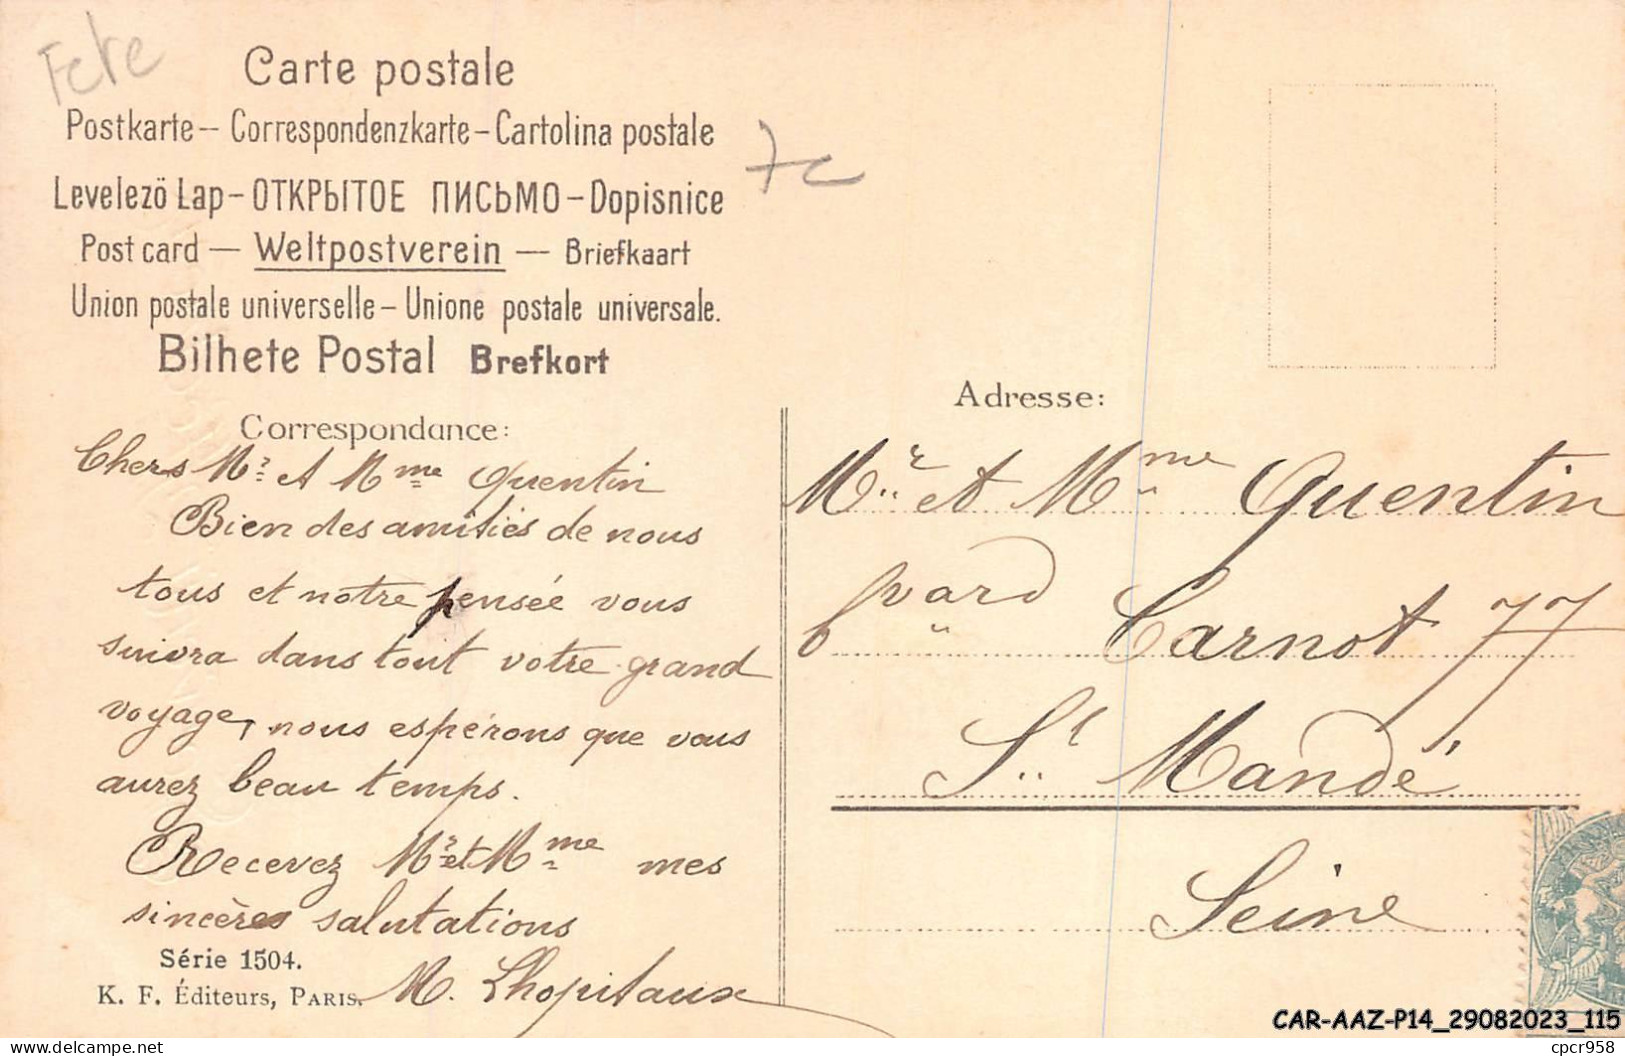 Fete
Carte postale
Postkarte — Correspondenzkarte — Cartolina postale
7c
Levelező Lap — ОТКРЫТОЕ ПИСЬМО — Dopisnice
Post card — Weltpostverein — Briefkaart
Union postale universelle — Unione postale universale.
Bilhete Postal Brefkort
Correspondance:
Chers Mr et Mme Quentin
Bien des amitiés de nous
tous et notre pensée vous
suivra dans tout votre grand
voyage, nous espérons que vous
aurez beau temps.
Recevez Mr et Mme mes
sincères salutations
M. Lhopitaux
Série 1504.
K. F. Éditeurs, PARIS.
Adresse:
Mr et Mme Quentin
bvard Carnot 77
St Mandé
Seine
CAR-AAZ-P14_29082023_115
cpcr958